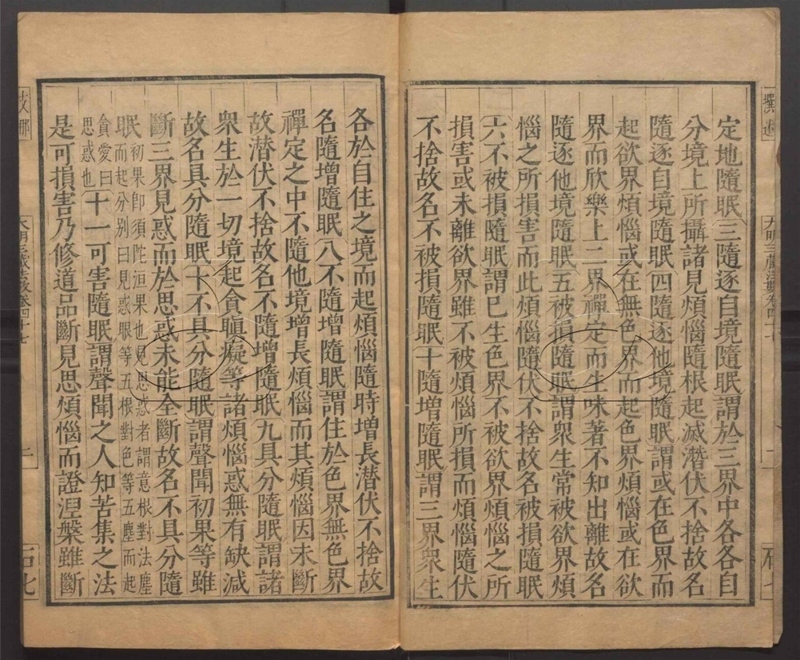 定地隨眠三隨逐自境隨眠謂於三界中各各自
分境上所攝諸見煩惱隨根起滅潛伏不捨故名
隨逐自境隨眠四隨逐他境隨眠謂或在色界而
起欲界煩惱或在無色界而起色界煩惱或在欲
界而欣樂上二界禪定而生味著不知出離故名
隨逐他境隨眠五被損隨眠謂衆生常被欲界煩
惱之所損害而此煩惱隨伏不捨故名被損隨眠
六不被損隨眠謂已生色界不被欲界煩惱之所
損害或未離欲界雖不被煩惱所損而煩惱隨伏
不捨故名不被損隨眠七隨增隨眠謂三界衆生
各於自住之境而起煩惱隨時增長潛伏不捨故
名隨增隨眠八不隨增隨眠謂住於色界無色界
禪定之中不隨他境增長煩惱而其煩惱因未斷
故潛伏不捨故名不隨增隨眠九具分隨眠謂諸
衆生於一切境起貪瞋癡等諸煩惱惑無有缺減
故名具分隨眠十不具分隨眠謂聲聞初果等雖
斷三界見惑而於思惑未能全斷故名不具分隨
眠初果即須陀洹果也見思惑者謂意根對法塵
而起分別曰見惑眼等五根對色等五塵而起
貪愛曰
思惑也
十一可害隨眠謂聲聞之人知苦集之法
是可損害乃修道品斷見思煩惱而證涅槃雖斷
大明三藏法數卷四十七